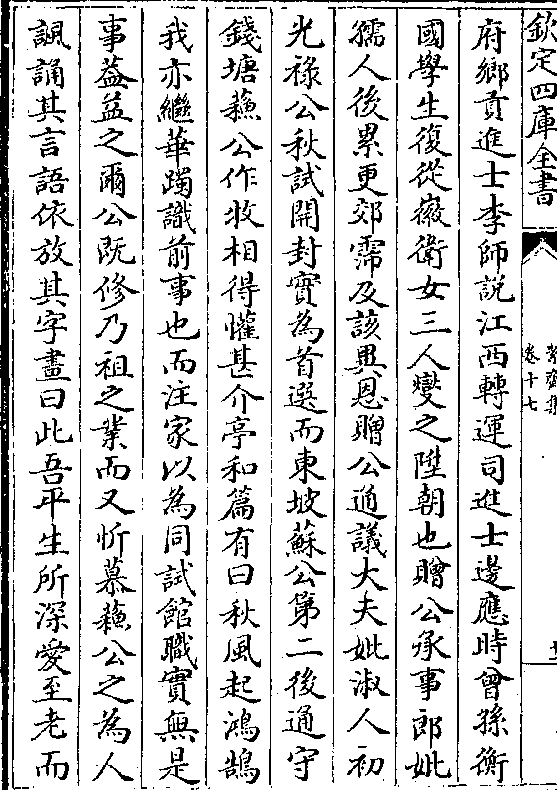 欽定四庫全書
卷十七
府鄉貢進士李師說江西轉運司進士邊應時曾孫衡
國學生復從徽衛女三人燮之陞朝也贈公承事郎妣
孺人後累更郊霈及該異恩贈公通議大夫妣淑人初
光祿公秋試開封實為首選而東坡蘇公第二後通守
錢塘蘓公作牧相得懽甚介亭和篇有曰秋風起鴻鵠
我亦繼華躅識前事也而注家以為同試館職實無是
事葢益之爾公既修乃祖之業而又忻慕蘓公之為人
諷誦其言語依放其字畫曰此吾平生所深愛至老而